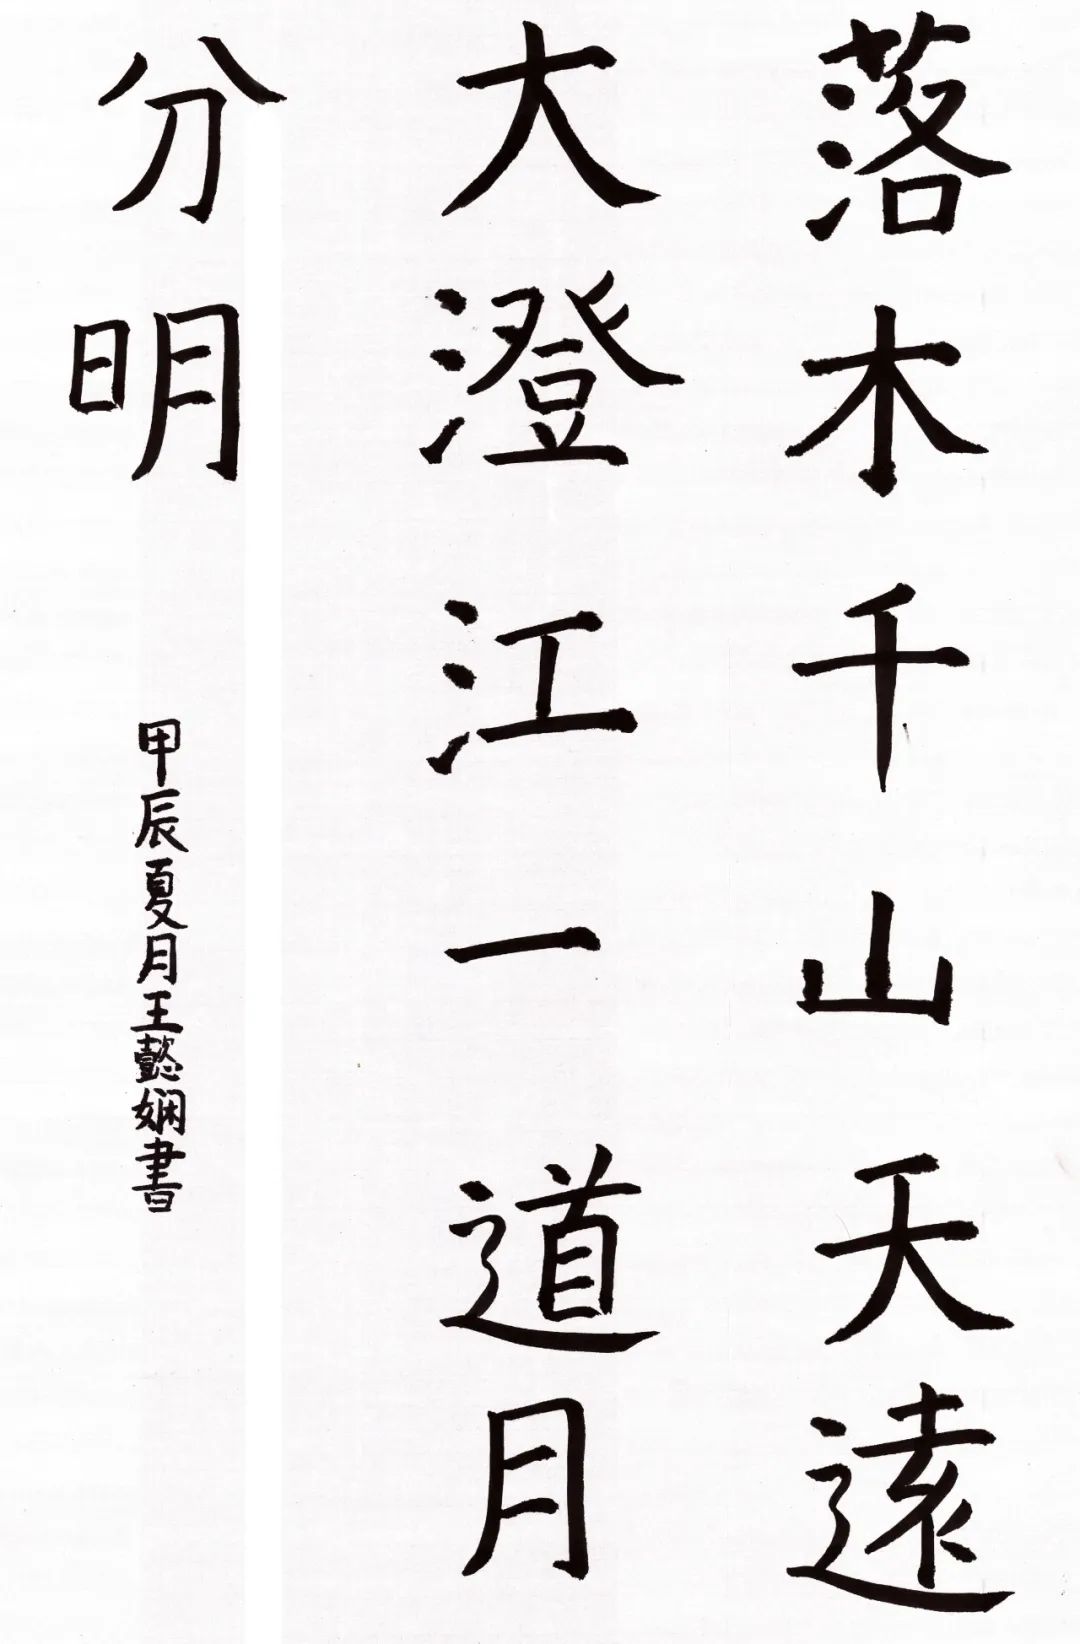 落木千山天遠
大澄江一道月
分明
甲辰夏月王懿娴書